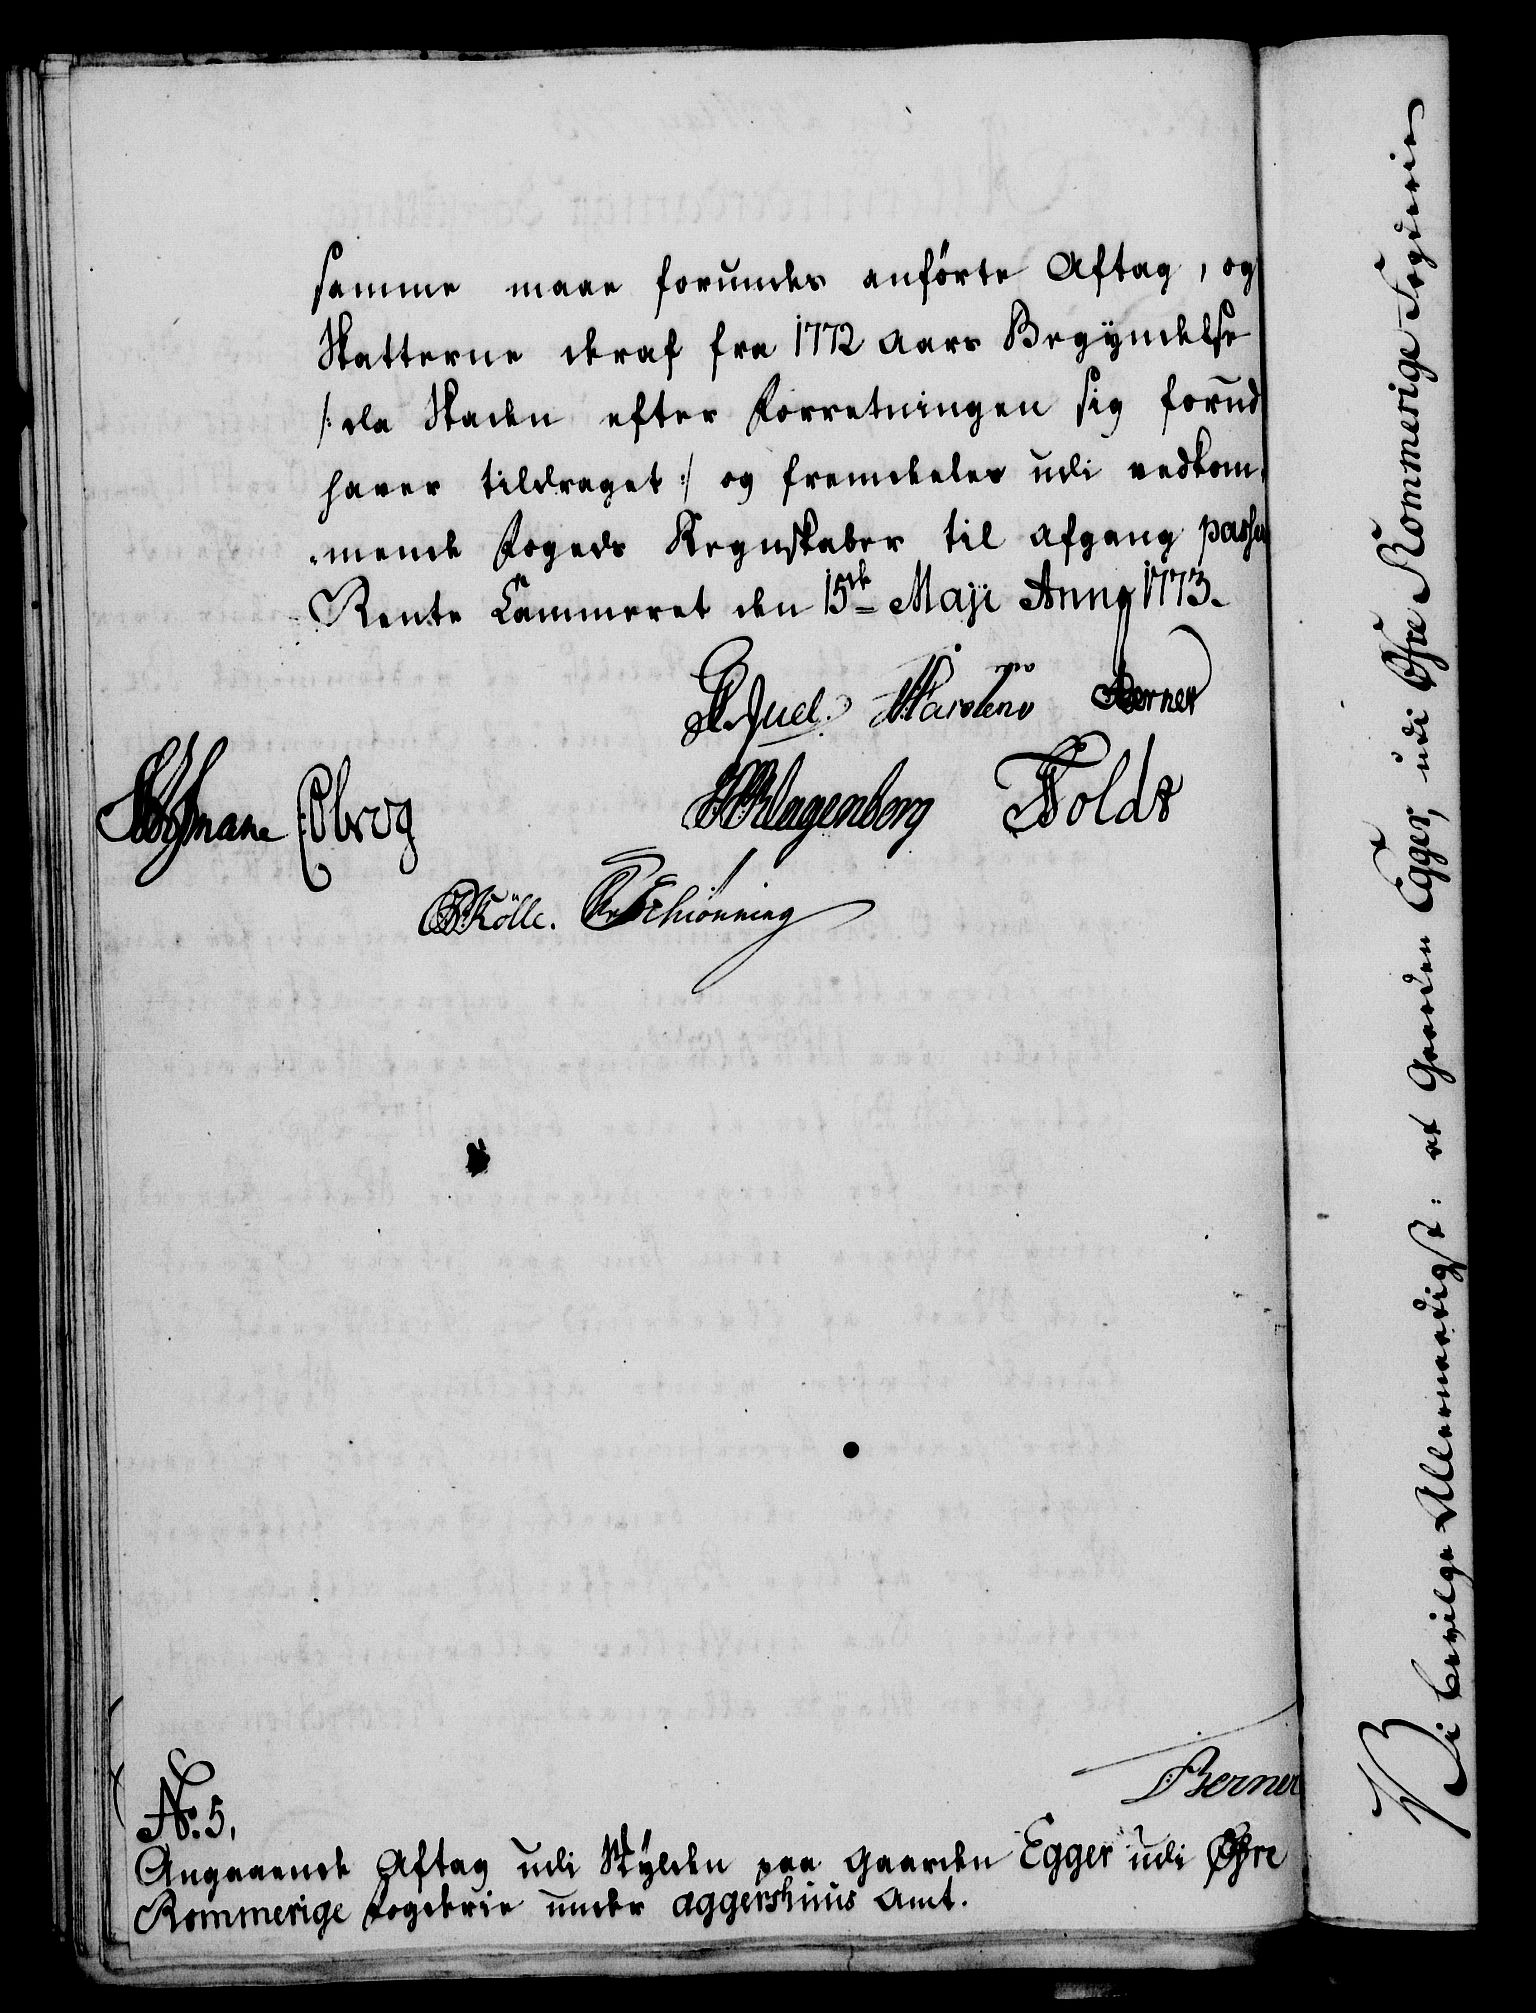 samme maae forundes anførte Aftag, og
Skatterne deraf fra 1772 Aars Begÿndelse
/: da Skaden efter Forretningen sig forud
haver tildraget :/ og fremdeeles udi vedkom-
-mende Fogeds Regnskaber til Afgang passe
Rente Cammeret den 15de Maji Anno 1773.
Juel. Berner
Klagenberg
Schiønning
Berner
No. 5.
Angaaende Aftag udi Skÿlden paa Gaarden Egger udi Øfre
Rommerige Fogderie under Aggershuus Amt.
Vi bevilge Allernaadigst: at Gaarden Egger, udi Øfre Rommerige Fogderie